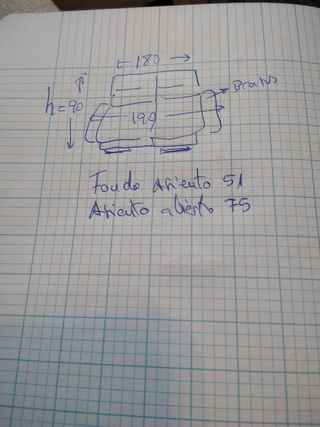 180
h = 90
Brazos
190
Fondo asiento 51
Asiento abierto 75